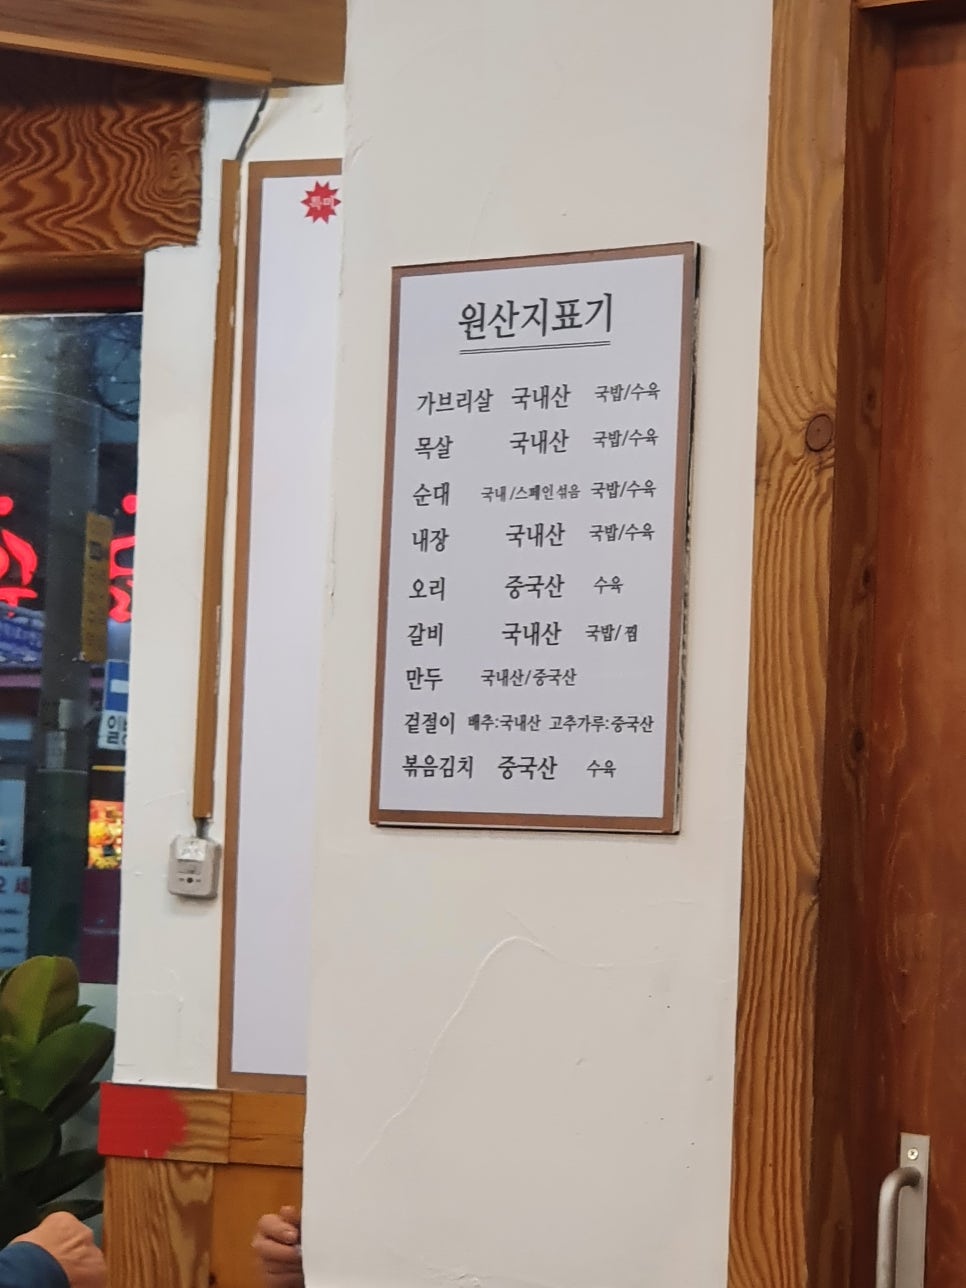 특미
원산지표기
가브리살 국내산 국밥/수육
목살 국내산 국밥/수육
순대 국내/스페인섞음 국밥/수육
내장 국내산 국밥/수육
오리 중국산 수육
갈비 국내산 국밥/찜
만두 국내산/중국산
겉절이 배추:국내산 고추가루:중국산
볶음김치 중국산 수육